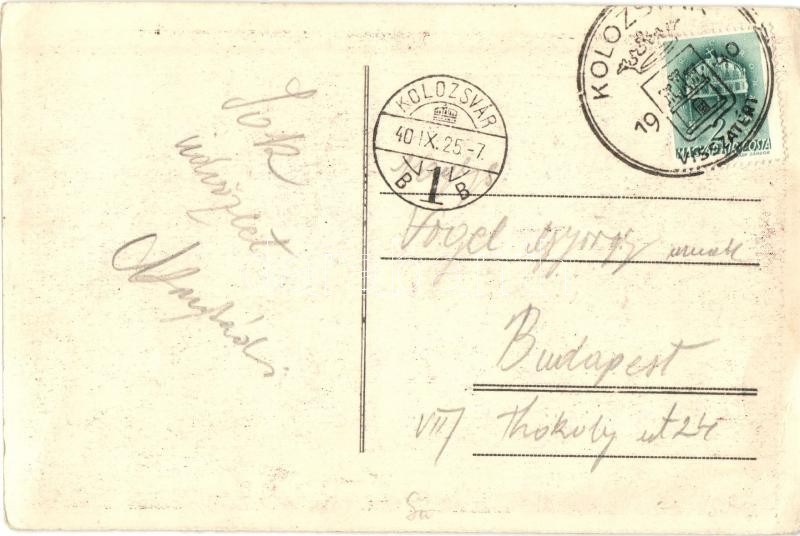 Sok
üdvözlet
Árpád.
KOLOZSVÁR
40 IX. 25.-7.
B 1 B
KOLOZSVÁR
1940
VISSZATÉRT
2
MAGYAR POSTA
Vogel György urnak
Budapest
VII/ Thököly ut 24